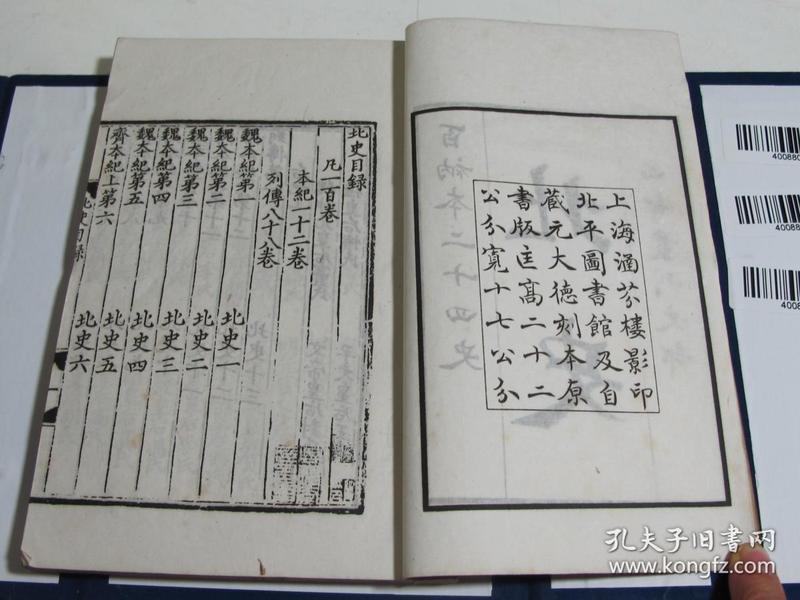 上海涵芬樓影印
北平圖書館及自
藏元大德刻本原
書版匡高二十二
公分寬十七公分
北史目録
凡一百卷
本紀一十二卷
列傳八十八卷
魏本紀第一 北史一
魏本紀第二 北史二
魏本紀第三 北史三
魏本紀第四 北史四
魏本紀第五 北史五
齊本紀上第六 北史六
北史目録
百衲本二十四史
40088
40088
4008
孔夫子旧书网
www.kongfz.com